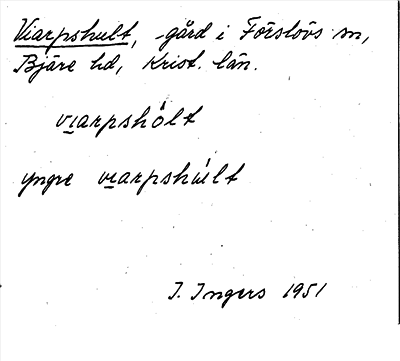 Viarpshult, gård i Förslövs sn,
Bjäre hd, Krist. län.
vıarpshòlt
yngre vıarpshùlt
I. Ingers 1951